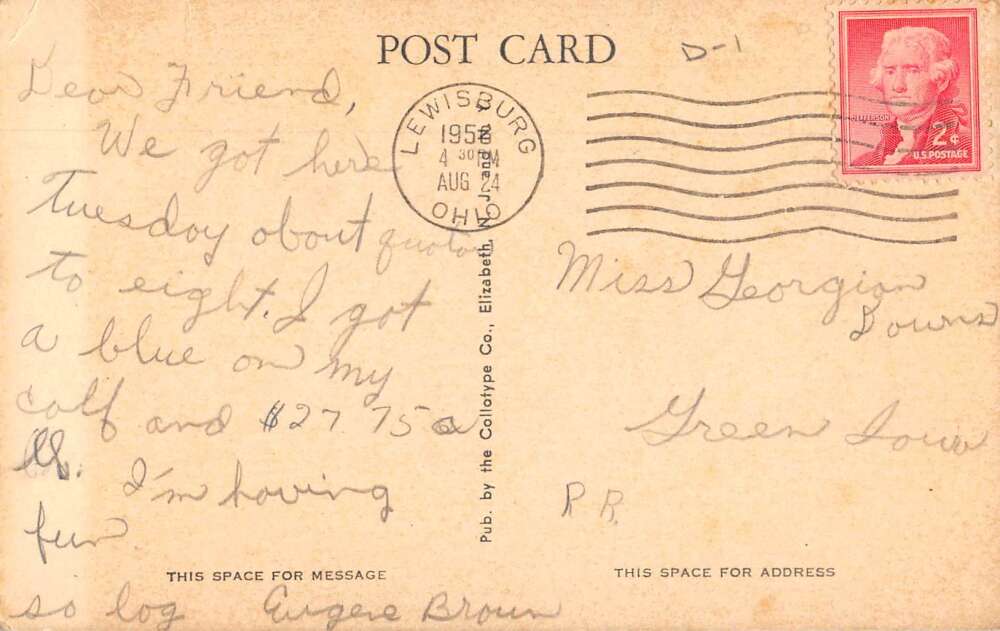 POST CARD
D-1
Dear Friend,
We got here
Tuesday about quotor
to eight. I got
a blue on my
calf and $27 75 a
lb. I'm having
fun
THIS SPACE FOR MESSAGE
so log Eugene Brown
LEWISBURG
1958
4 30 PM
AUG 24
OHIO
Pub. by the Collotype Co., Elizabeth, N. J. and N. Y.
JEFFERSON
2¢
U.S. POSTAGE
Miss Georgian
Downs
Green Iowa
R R.
THIS SPACE FOR ADDRESS